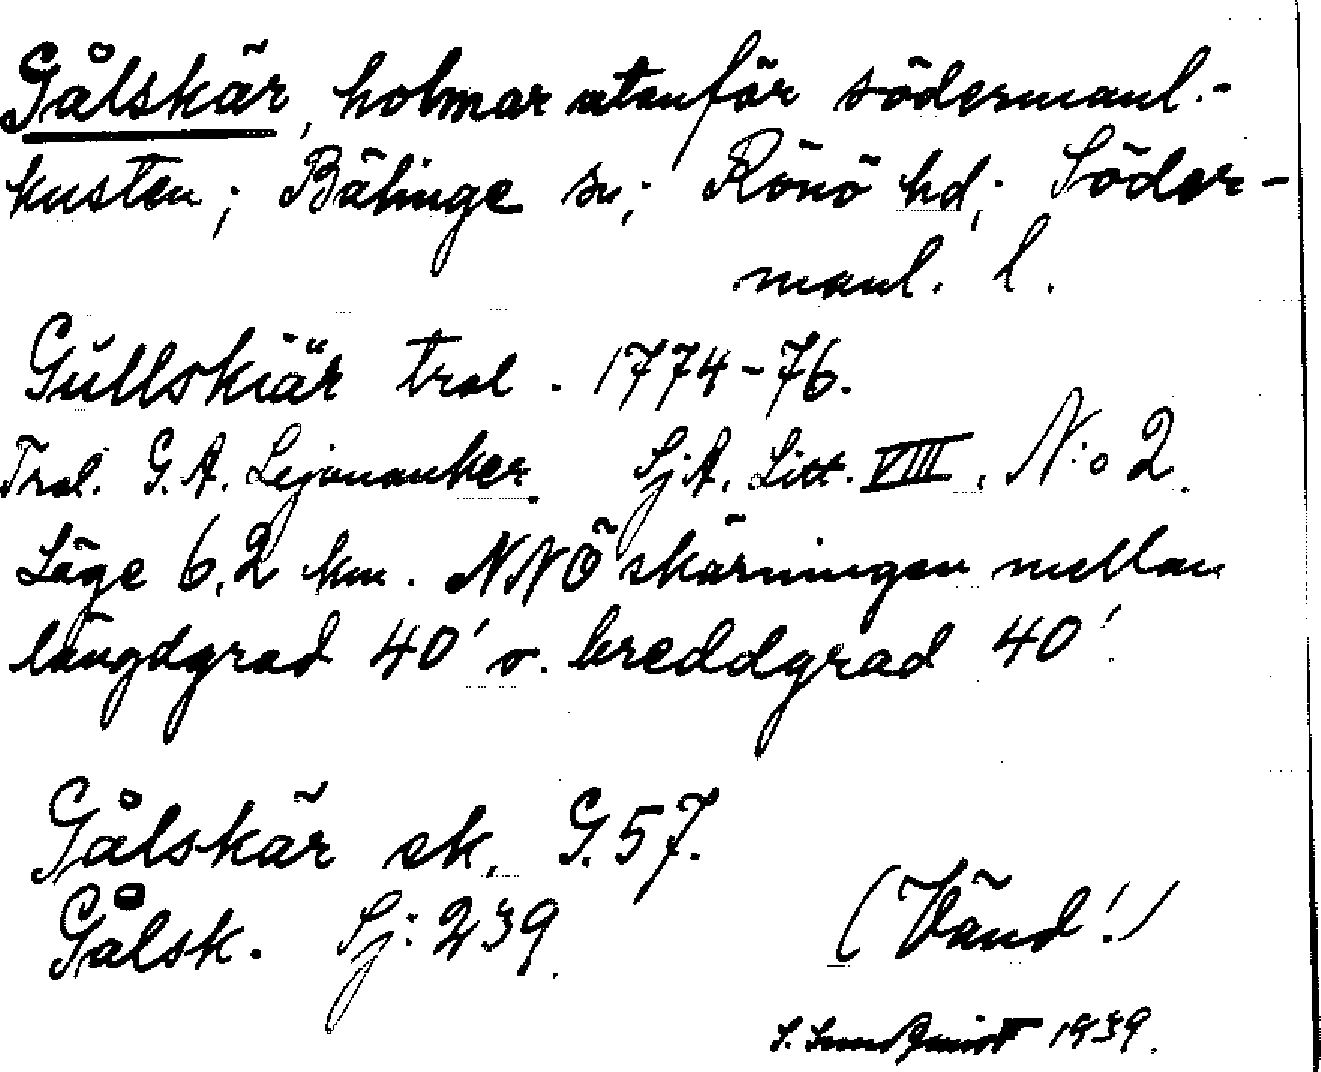 Gålskär, holmar utanför södermanl.-
kusten; Bälinge sn; Rönö hd; Söder-
manl. l.
Gullskiär trol. 1774-76.
Trol. G. A. Lejonanker. Sj.A. Litt. VIII. N:o 2.
Läge 6,2 km. NNÖ skärningen mellan
längdgrad 40' o. breddgrad 40'.
Gålskär ek. G.57.
Gålsk. Sj: 239.
(Vänd!)
S. 1939.